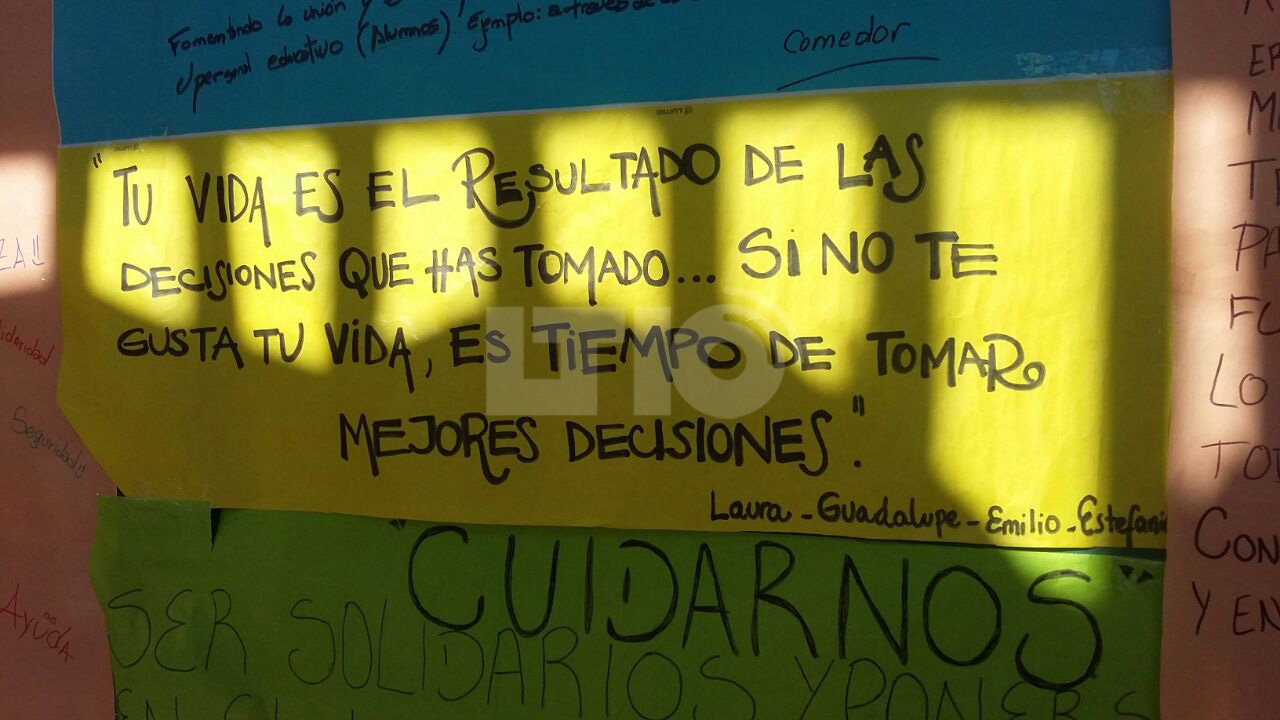 Fomentando la unión y
el personal educativo (Alumnos). Ejemplo: a través de
Comedor
"TU VIDA ES EL RESULTADO DE LAS
DECISIONES QUE HAS TOMADO... SI NO TE
GUSTA TU VIDA, ES TIEMPO DE TOMAR
MEJORES DECISIONES".
Laura - Guadalupe - Emilio - Estefani
"CUIDARNOS"
SER SOLIDARIOS Y PONERS
EN EL
ZA!!
lidaridad
Seguridad!!
Ayuda
ER
M
PA
FU
LO
TOD
CON
Y EN
LTIO